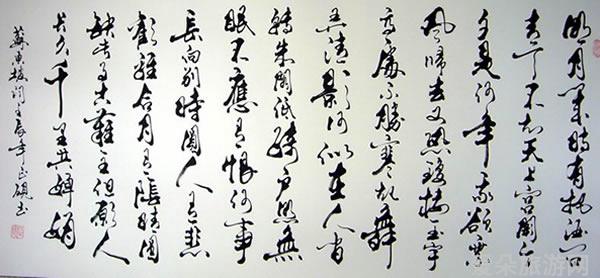 明月几时有把酒问
青天不知天上宫阙今
夕是何年我欲乘
风归去又恐琼楼玉宇
高处不胜寒起舞
弄清影何似在人间
转朱阁低绮户照无
眠不应有恨何事
长向别时圆人有悲
歡離合月有陰晴圆
缺此事古難全但願人
长久千里共婵娟
蘇東坡词壬辰年
朵旅游网